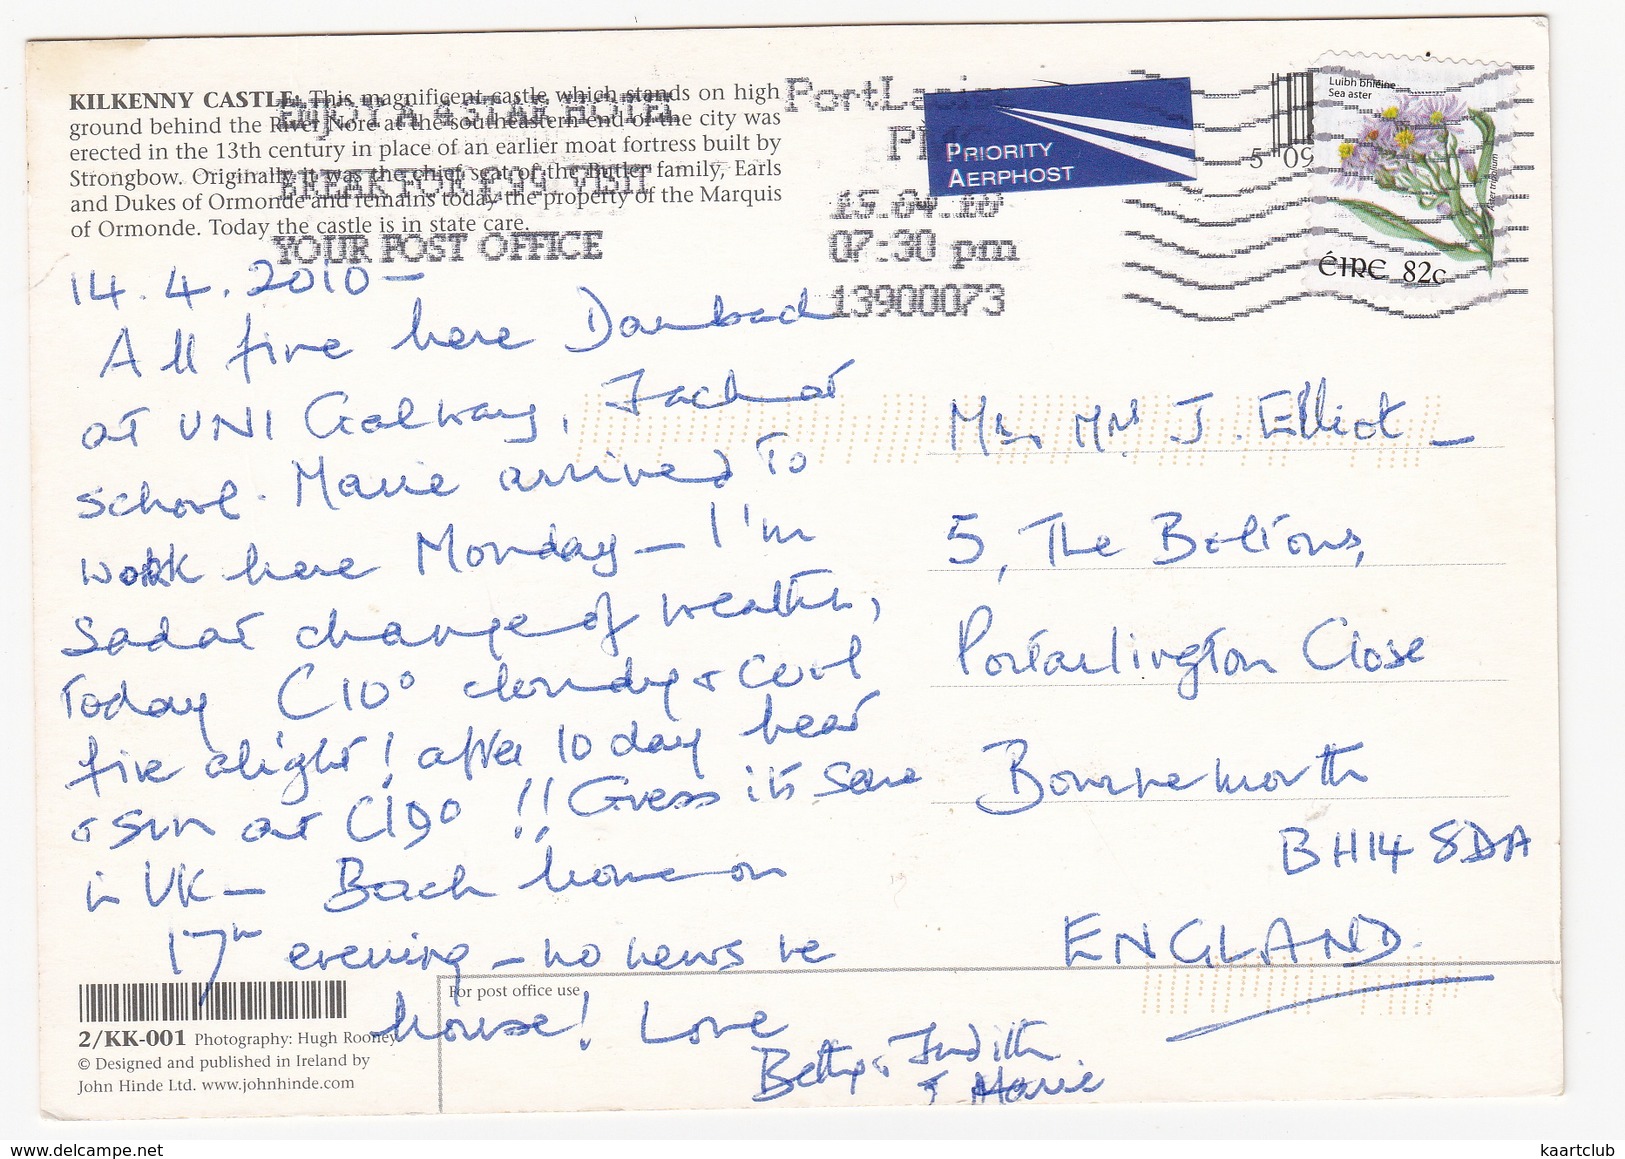 KILKENNY CASTLE: This magnificent castle which stands on high
ground behind the River Nore at the southeastern end of the city was
erected in the 13th century in place of an earlier moat fortress built by
Strongbow. Originally it was the chief seat of the Butler family, Earls
and Dukes of Ormonde and remains today the property of the Marquis
of Ormonde. Today the castle is in state care.
ENJOY A 4 STAR HOTEL
BREAK FOR €99 VISIT
YOUR POST OFFICE
PortLaoise
PMC
15.04.10
07:30 pm
13900073
PRIORITY
AERPHOST
5 09
Luibh bhléine
Sea aster
Aster tripolium
ÉIRE 82c
14.4.2010 –
All fine here
at UNI Galway, Jack at
school. Marie arrived to
work here Monday – I'm
Sad at change of weather,
Today C10° cloudy & cool
fire alight! after 10 day heat
& sun at C19° !! Guess its same
in UK – Back home on
17th evening – no news re
house! Love
Betty & Judith
& Marie
Mr Mrs J. Elliot –
5, The Boltons,
Portarlington Close
Bournemouth
BH14 8DA
ENGLAND
For post office use
2/KK-001 Photography: Hugh Rooney
© Designed and published in Ireland by
John Hinde Ltd. www.johnhinde.com
delcampe.net
kaartclub